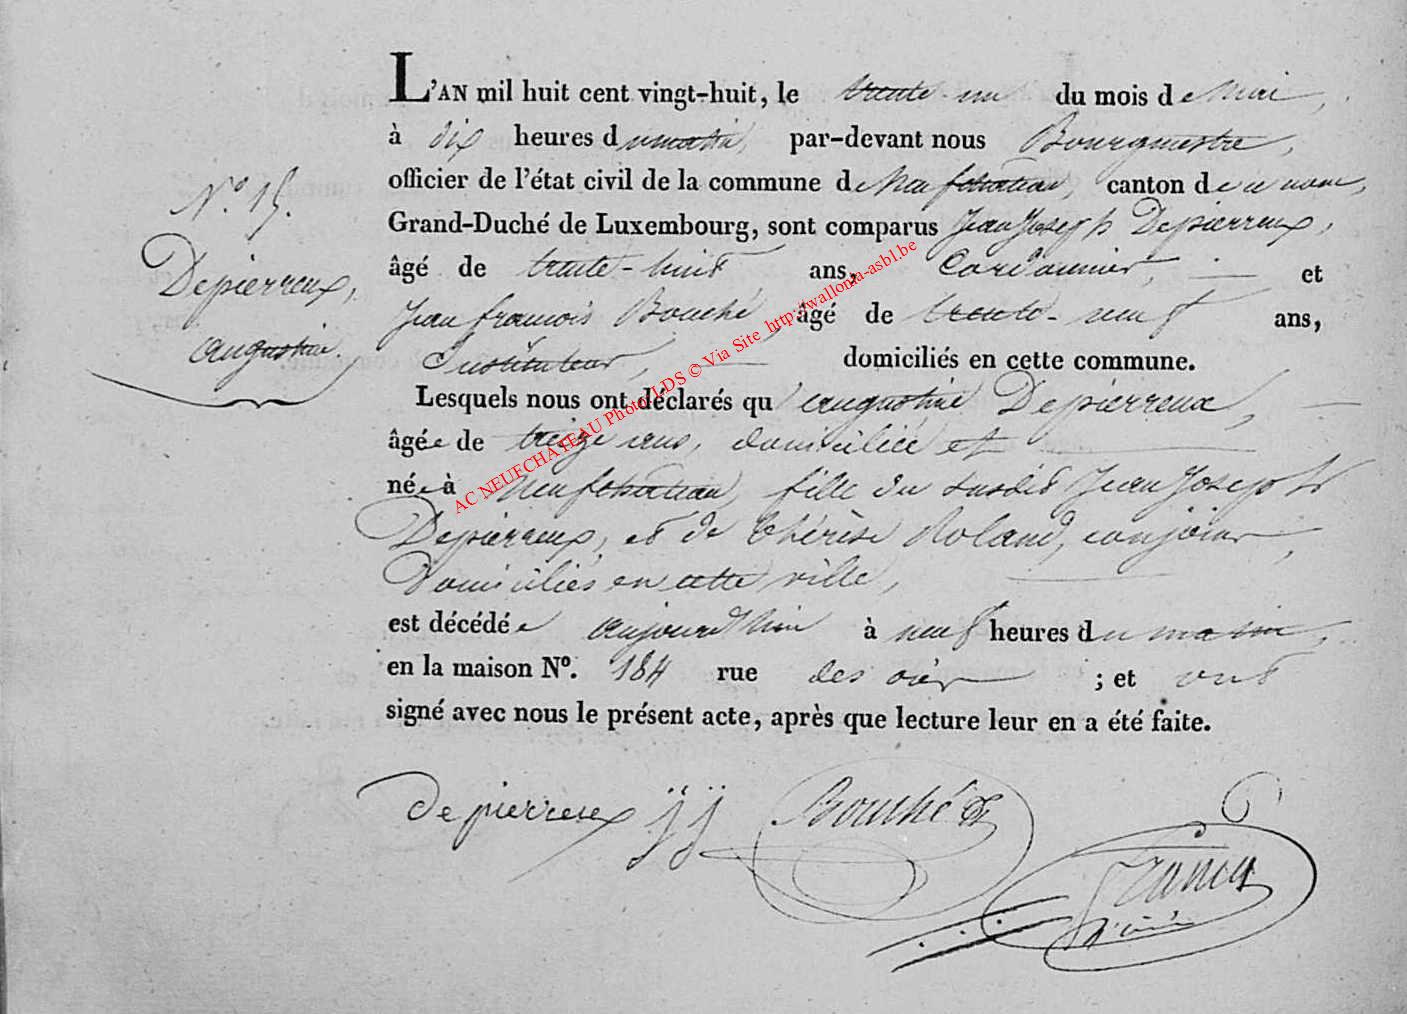 N.° 15.
Depierreux,
augustine.
L'AN mil huit cent vingt-huit, le trente-un du mois de Mai,
à dix heures du matin, par-devant nous Bourgmestre,
officier de l'état civil de la commune de Neufchateau, canton de ce nom,
Grand-Duché de Luxembourg, sont comparus Jean Joseph Depierreux,
âgé de trente-huit ans, Cordonnier, et
Jean françois Bouché, âgé de trente-neuf ans,
Instituteur, domiciliés en cette commune.
Lesquels nous ont déclarés qu'augustine Depierreux,
âgée de treize ans, domiciliée et
née à Neufchateau, fille du susdit Jean Joseph
Depierreux, et de thérèse Roland, conjoints,
Domiciliés en cette ville,
est décédée aujourd'hui à neuf heures du matin,
en la maison N°. 184 rue des ; et ont
signé avec nous le présent acte, après que lecture leur en a été faite.
Depierreux j j Bouché
AC NEUFCHATEAU Photo LDS © Via Site http://wallonia-asbl.be